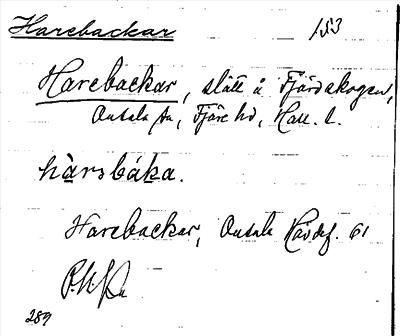 Harebackar 153
Harebackar, slätt å Fjärdskogen,
Onsala sn, Fjäre hd, Hall. l.
hàrsbáka.
Harebackar, Onsala Hävdef. 61
289